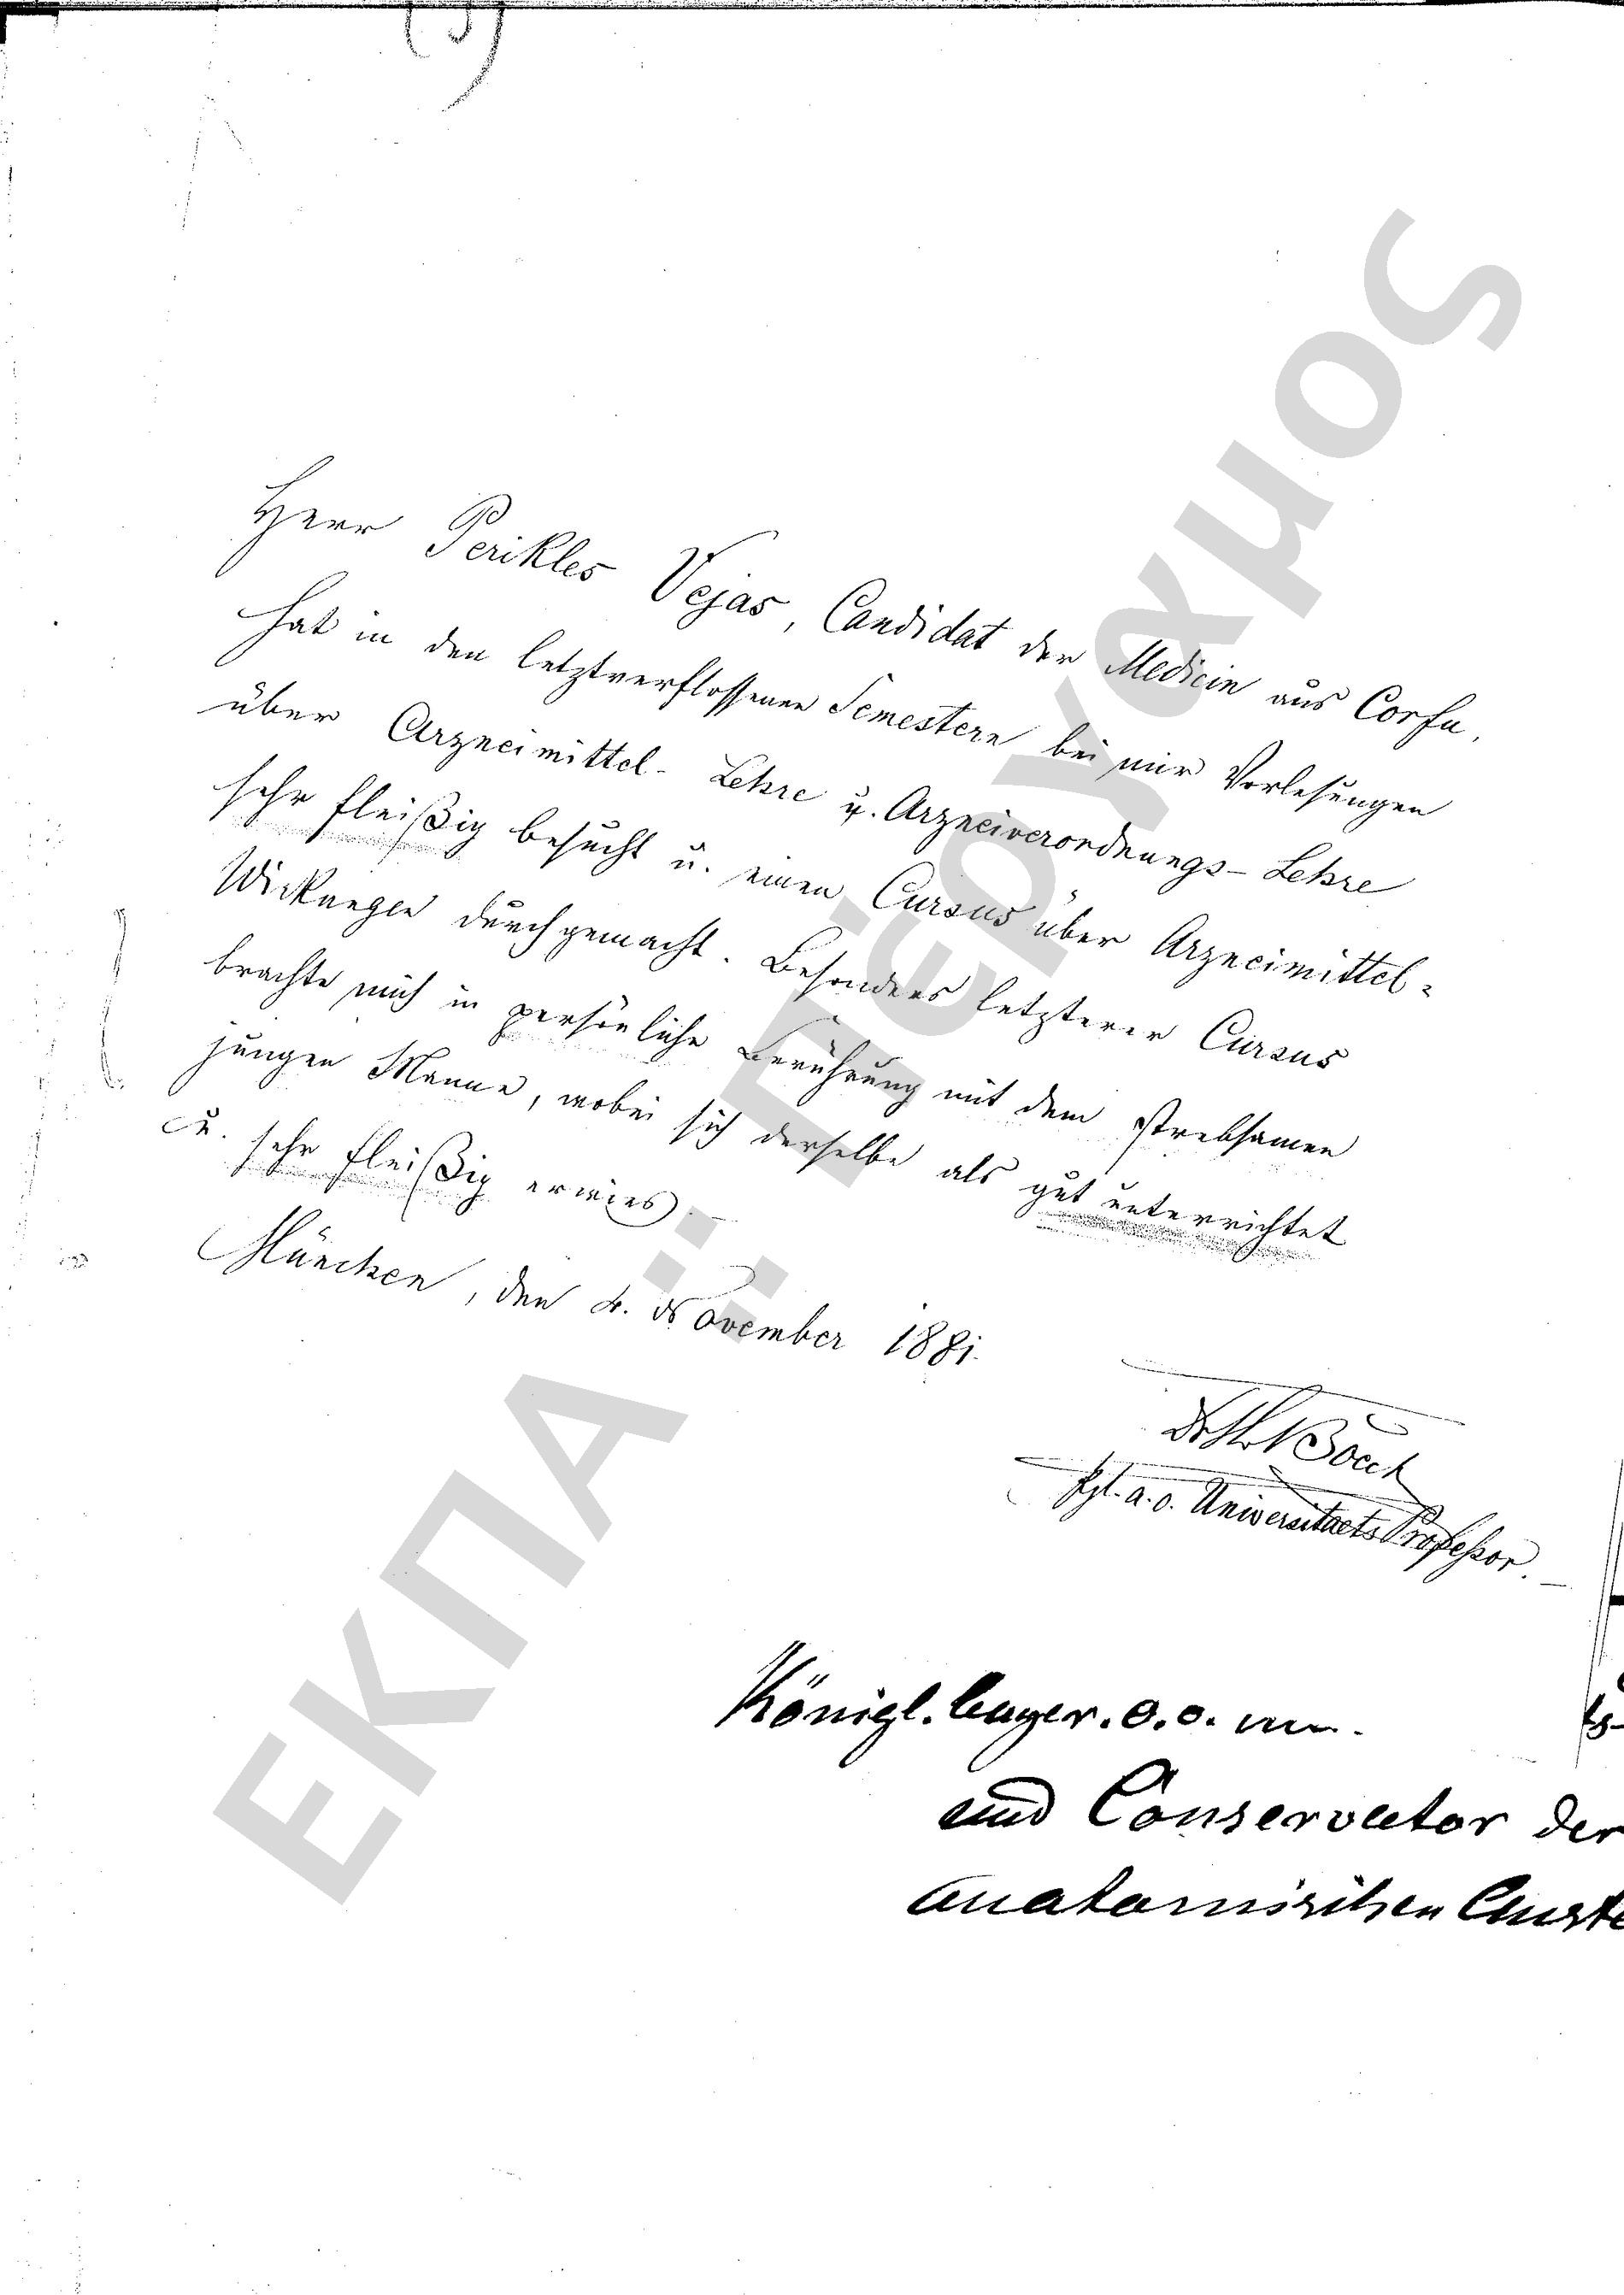 Herr Perikles Vejas, Candidat der Medicin aus Corfu,
hat in den letztverflossenen Semestern bei mir Vorlesungen
über Arzneimittel-Lehre u. Arzneiverordnungs-Lehre
sehr fleißig besucht u. einen Cursus über Arzneimittel-
Wirkungen durchgemacht. Besonders letzterer Cursus
brachte mich in persönliche Berührung mit dem strebsamen
jungen Manne, wobei sich derselbe als gut unterrichtet
u. sehr fleißig erwies.
München, den 4. November 1881.
Boeck
kgl. a. o. Universitaets Professor.
Königl. bayer. o.o.
und Conservator der
anatomischen Anst
ΕΚΠΑ Πέργαμος